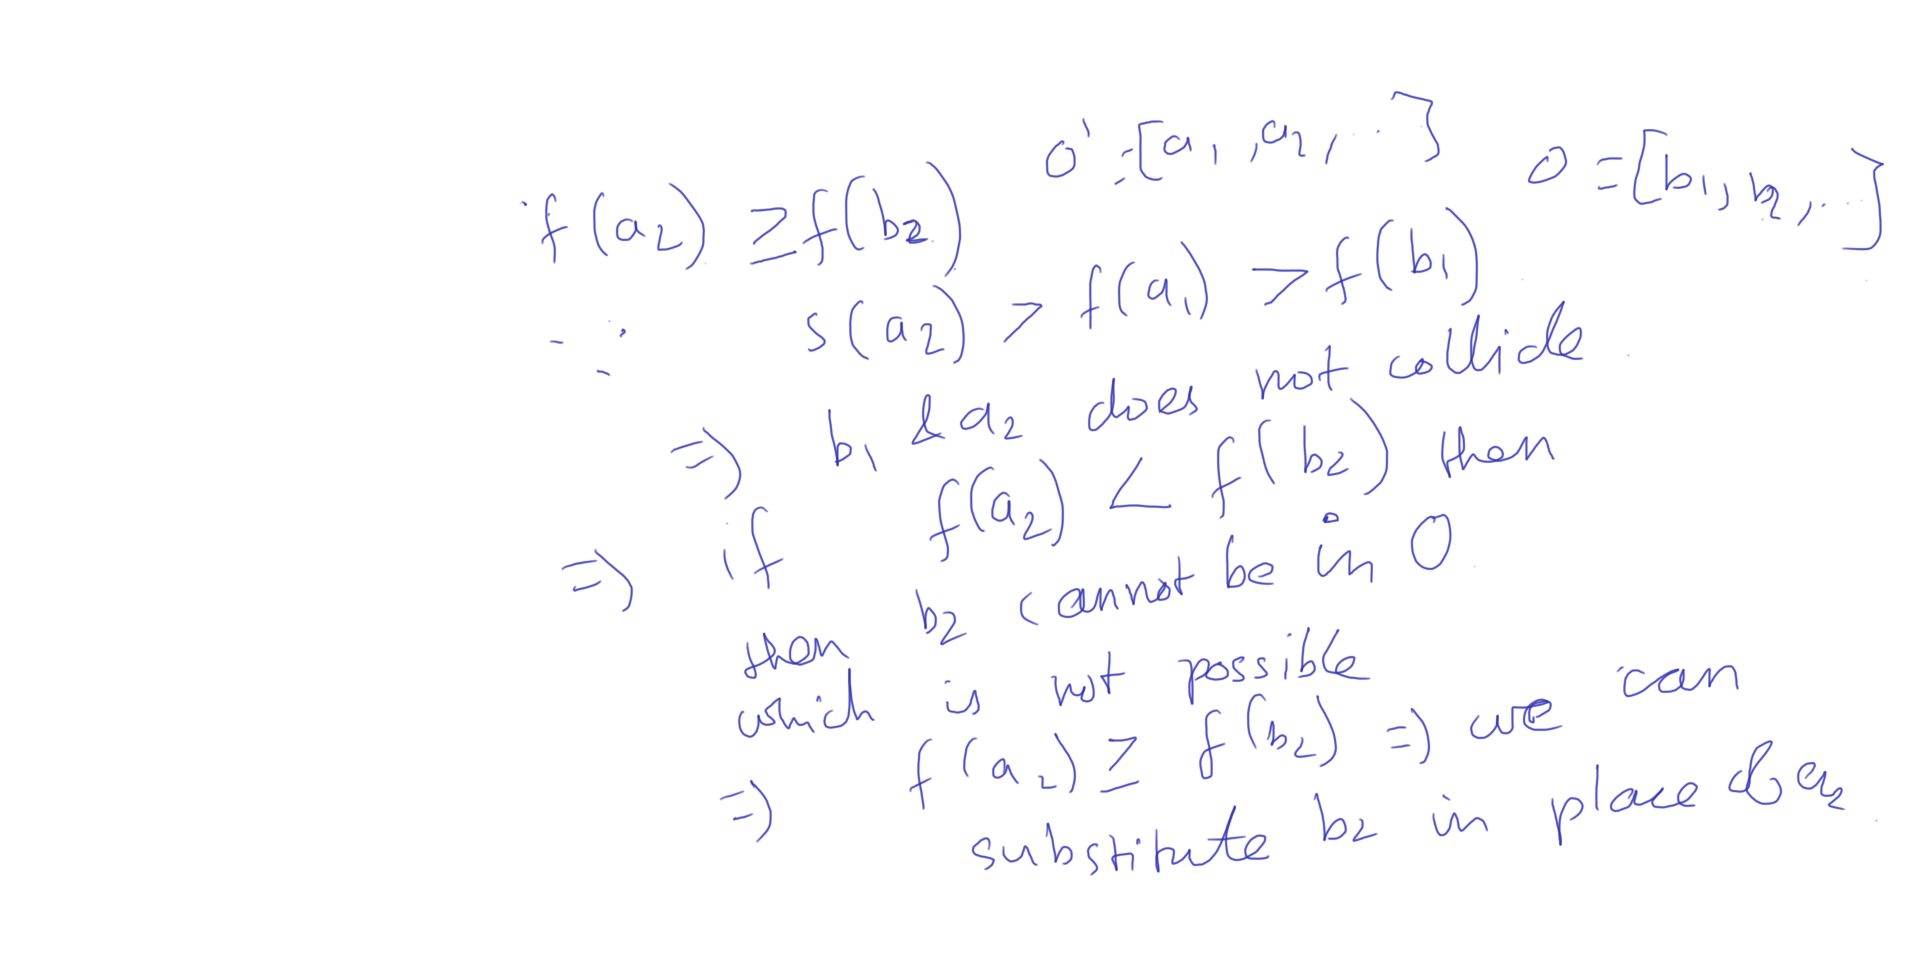 O' = [a1, a2, ..]
O = [b1, b2, ..]
f(a2) ≥ f(b2)
∵ s(a2) > f(a1) > f(b1)
=> b1 & a2 does not collide
=> if f(a2) < f(b2) then
then b2 cannot be in O
which is not possible
=> f(a2) ≥ f(b2) => we can
substitute b2 in place of a2